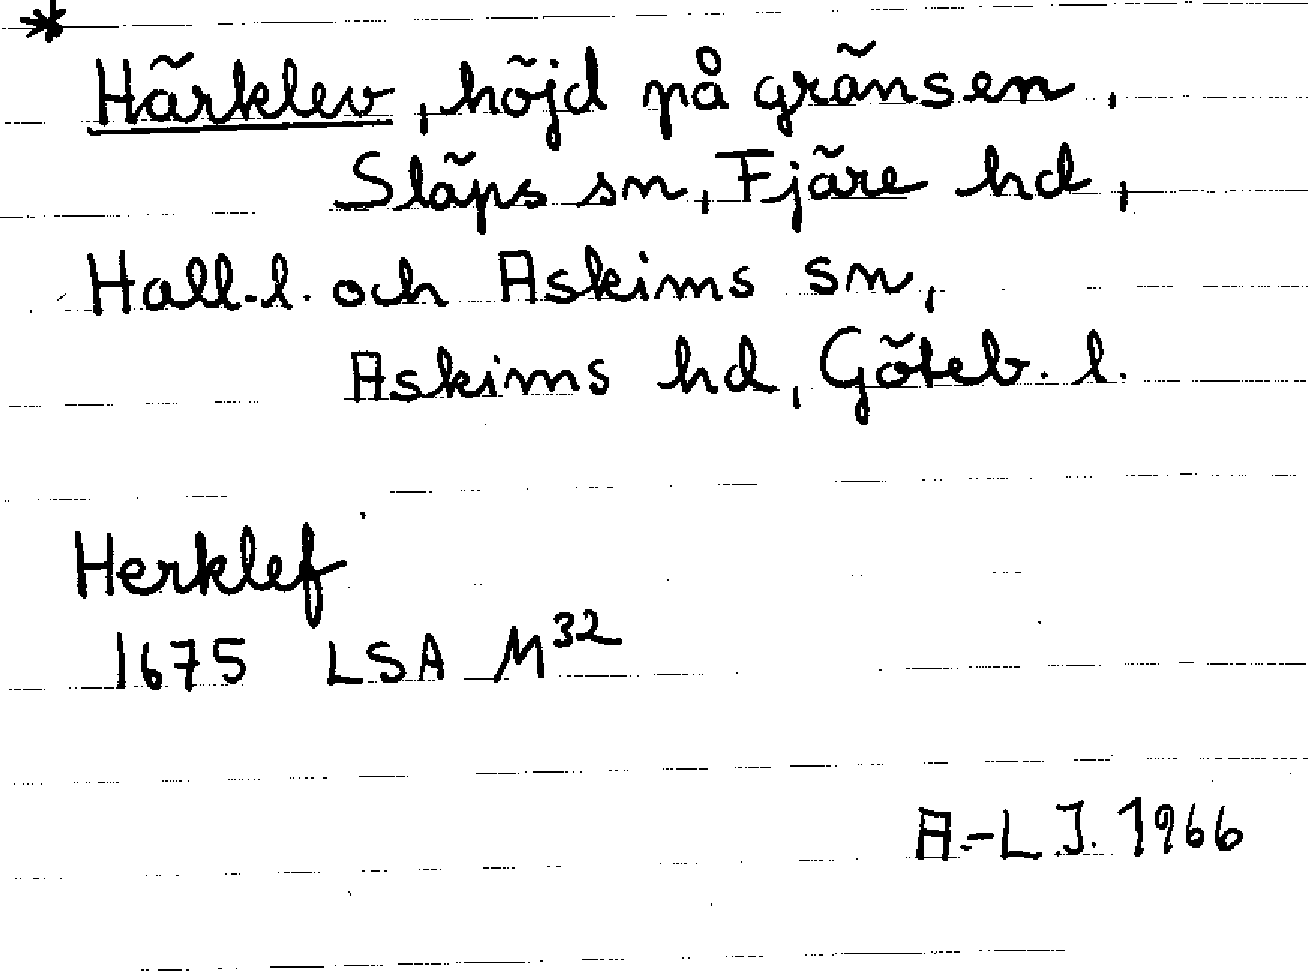 *
Härklev, höjd på gränsen,
Släps sn, Fjäre hd,
Hall.l. och Askims sn,
Askims hd, Göteb. l.
Herklef
1675 LSA M³²
A.-L J. 1966